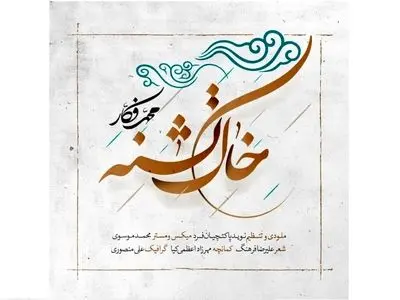 خاک تشنه
ملودی و تنظیم نوید پاکتچیان فرد میکس و مستر محمد موسوی
شعر علیرضا فرهنگ کمانچه مهرزاد اعظمی کیا گرافیک علی منصوری